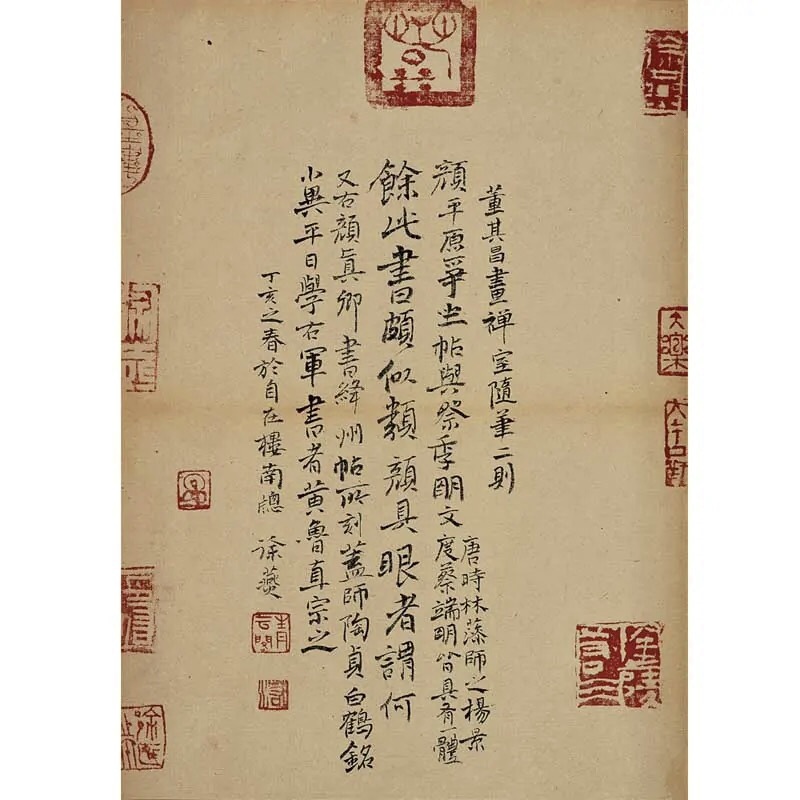 董其昌畫禅室隨筆二則
顏平原爭坐帖與祭季明文唐時林藻師之楊景
度蔡端明皆具有一體
餘此書頗似類顏具眼者謂何
又右顏眞卿書絳州帖所刻蓋師陶貞白鶴銘
小異平日學右軍書者黃魯直宗之
丁亥之春於自在樓南牕 徐燕
大樂